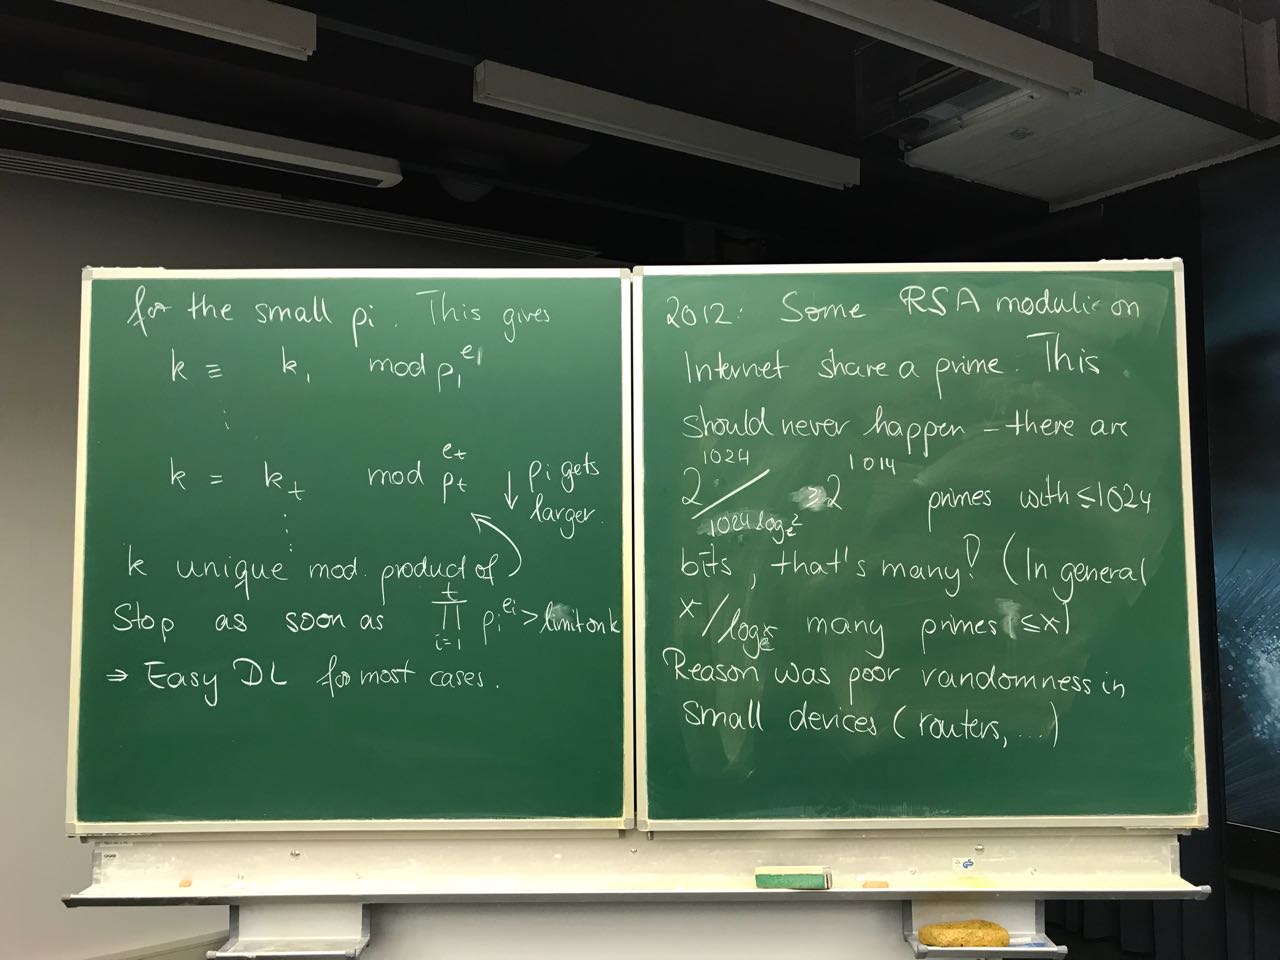 for the small pi. This gives
k ≡ k₁ mod p₁^e₁
⋮
k = k_t mod p_t^e_t ↓ pi gets
larger.
⋮
k unique mod. product of
Stop as soon as ∏_{i=1}^{t} pi^ei > limit on k
⇒ Easy DL for most cases.
2012: Some RSA moduli on
Internet share a prime. This
should never happen – there are
2^1024 / 1024 log_e 2 ≥ 2^1014 primes with ≤ 1024
bits, that's many! (In general
x / log_e x many primes ≤ x)
Reason was poor randomness in
small devices (routers, ...)